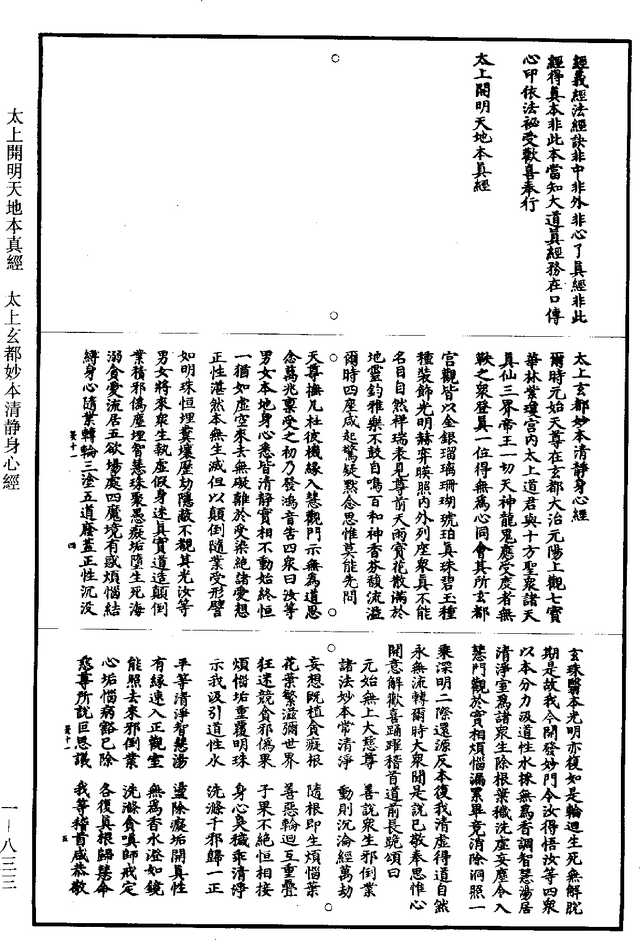 經義經法經訣非中非外非心了真經非此
經得真本非此本當知大道真經務在口傳
心印依法祕受歡喜奉行
太上開明天地本真經
太上玄都妙本清靜身心經
爾時元始天尊在玄都大治元陽上觀七寶
華林紫瓊宮內太上道君與十方聖衆諸天
真仙三界帝王一切天神龍鬼應受度者無
鞅之衆登真一位得無為心同會其所玄都
宮觀皆以金銀瑠璃珊瑚琥珀真珠碧玉種
種裝飾光明赫弈暎照內外列座衆真不能
名目自然祥瑞來見尊前天雨寶花散滿於
地靈鈞雅樂不鼓自鳴百和神香芬馥流溢
爾時四座咸起驚疑默念思惟莫能先問
天尊撫几杜彼機緣入慧觀門示無為道思
念萬兆稟受之初乃發鴻音告四衆曰汝等
男女本地身心悉皆清靜實相不動始終恒
一猶如虛空來去無礙離於受染絕諸愛想
正性湛然本無生滅但以顛倒隨業受形譬
如明珠恒埋糞壤歷劫隱蔽不覩其光汝等
男女將來衆生執虛假身迷真實道造顛倒
業積邪僞塵埋智慧珠聚愚癡垢墮生死海
溺貪愛流居五欲場處四魔境有惑煩惱結
縛身心隨業轉輪三塗五道廢蓋正性沉没
玄珠響本光明亦復如是輪迴生死無解脫
期是故我今開發妙門令汝得悟汝等四衆
以本分力汲道性水採無為香調智慧湯居
清淨室為諸衆生除根葉穢洗虛妄塵令入
慧門觀於實相煩惱漏累畢竟消除洞照一
乘深明二際還源反本復我清虛得道自然
永無流轉爾時大衆聞是說已敬奉思惟心
開意解歡喜踊躍稽首道前長跪頌曰
元始無上大慈尊 善說衆生邪倒業
諸法妙本常清淨 動則沉淪經萬劫
妄想旣植貪癡根 隨根即生煩惱葉
花葉繁滋彌世界 善惡輪迴互重疊
狂迷競貪邪僞果 子果不絕恒相接
煩惱垢重覆明珠 身心臭穢乖清淨
示我汲引道性水 洗滌千邪歸一正
平等清淨智慧湯 盪除癡垢開真性
有緣速入正觀室 無為香水澄如鏡
能照去來邪倒業 洗滌貪嗔歸戒定
心垢惱病豁已除 各復真根歸慧命
慈尊所說叵思議 我等稽首咸恭敬
太上開明天地本真經 太上玄都妙本清靜身心經
一—八三三